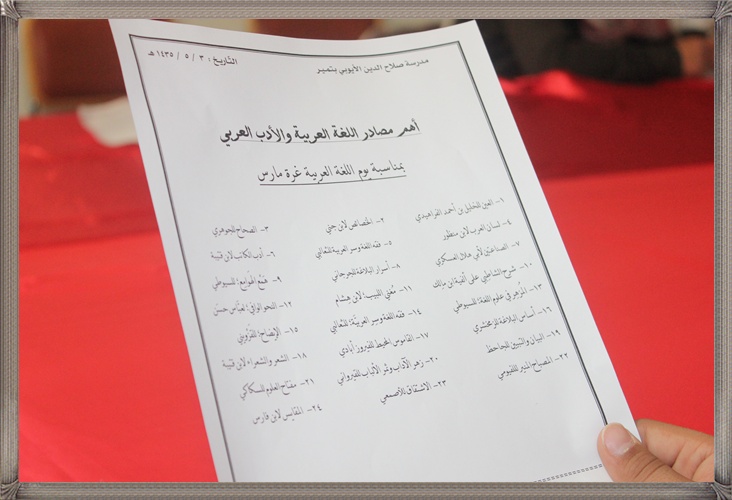 مدرسة صلاح الدين الأيوبي بتمير
التاريخ : ٣ / ٥ / ١٤٣٥ هـ
أهم مصادر اللغة العربية والأدب العربي
بمناسبة يوم اللغة العربية غرة مارس
١- العين للخليل بن أحمد الفراهيدي ٢- الخصائص لابن جني ٣- الصحاح للجوهري
٤- لسان العرب لابن منظور ٥- فقه اللغة وسر العربية للثعالبي ٦- أدب الكاتب لابن قتيبة
٧- الصناعتين لأبي هلال العسكري ٨- أسرار البلاغة للجرجاني ٩- همع الهوامع: للسيوطي
١٠- شرح الشاطبي على ألفية ابن مالك ١١- مُغني اللبيب: لابن هشام ١٢- النحو الوافي: لعبَّاس حسَن
١٣- المُزهر في علوم اللغة: للسيوطي ١٤- فقه اللغة وسر العربيَّة: للثعالبي ١٥- الإيضاح: للقزويني
١٦- أساس البلاغة للزمخشري ١٧- القاموس المحيط للفيروز أبادي ١٨- الشعر والشعراء لابن قتيبة
١٩- البيان والتبيين للجاحظ ٢٠- زهر الآداب وثمر الألباب للقيرواني ٢١- مفتاح العلوم للسكاكي
٢٢- المصباح المنير للفيومي ٢٣- الاشتقاق للأصمعي ٢٤- المقاييس لابن فارس